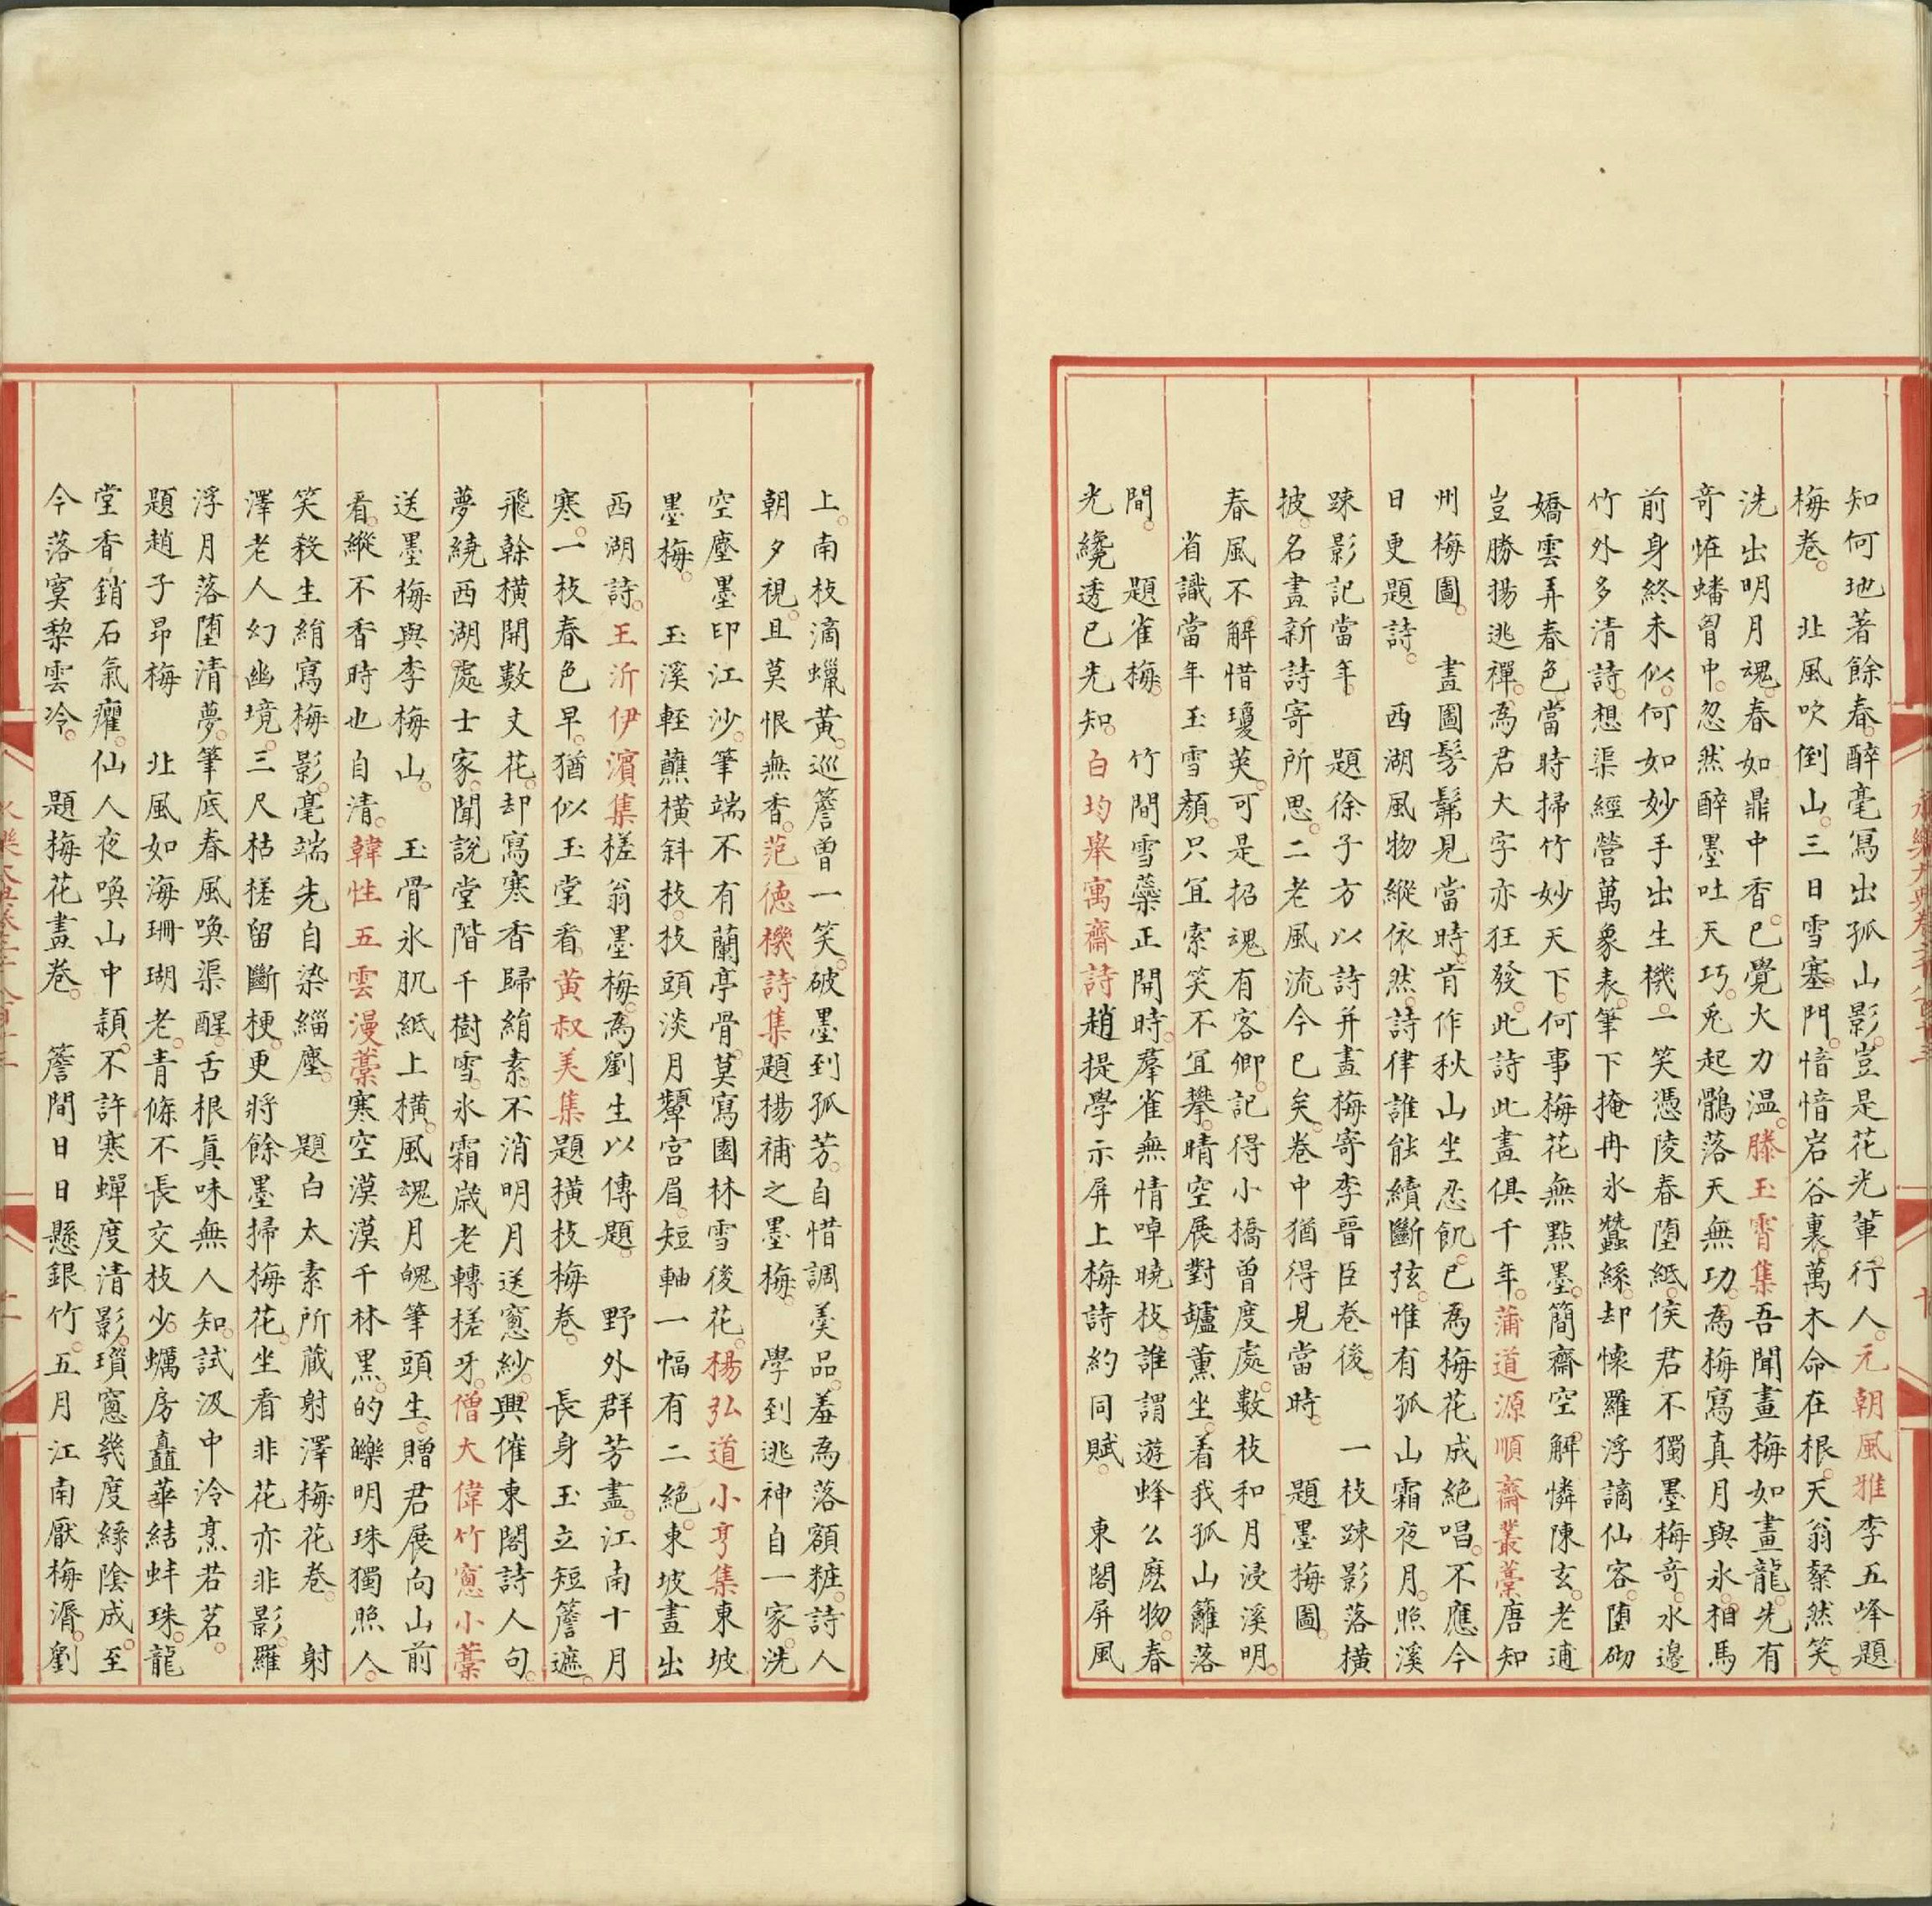 知何地著餘春醉毫寫出孤山影豈是花光輩行人元朝風雅李五峰題
梅卷北風吹倒山三日雪塞門愔愔岩谷裏萬木命在根天翁粲然笑
洗出明月魂春如鼎中香已覺火力温滕玉霄集吾聞畫梅如畫龍先有
奇恠蟠胷中忽然醉墨吐天巧兎起鶻落天無功為梅寫真月與氷相馬
前身終未似何如妙手出生機一笑憑陵春墮紙侯君不獨墨梅奇水邊
竹外多清詩想渠經營萬象表筆下掩冉氷蠶絲却懷羅浮謫仙客墮砌
嬌雲弄春色當時掃竹妙天下何事梅花無點墨簡齋空解憐陳玄老逋
豈勝揚逃禪為君大字亦狂發此詩此畫俱千年蒲道源順齋叢藁唐知
州梅圖畫圖髣髴見當時肯作秋山坐忍飢已為梅花成絶唱不應今
日更題詩西湖風物縱依然詩律誰能續斷弦惟有孤山霜夜月照溪
踈影記當年題徐子方以詩并畫梅寄李晉臣卷後一枝踈影落橫
披名畫新詩寄所思二老風流今已矣卷中猶得見當時題墨梅圖
春風不解惜瓊英可是招魂有客卿記得小橋曾度處數枝和月浸溪明
省識當年玉雪顏只宜索笑不宜攀晴空展對鑪薰坐着我孤山籬落
間題雀梅竹間雪蘂正開時羣雀無情啅曉枝誰謂遊蜂么麽物春
光纔透已先知白均舉寓齋詩趙提學示屏上梅詩約同賦東閣屏風
上南枝滴蠟黃巡簷曾一笑破墨到孤芳自惜調羹品羞為落額粧詩人
朝夕視且莫恨無香范德機詩集題楊補之墨梅學到逃神自一家洗
空塵墨印江沙筆端不有蘭亭骨莫寫園林雪後花楊弘道小亨集東坡
墨梅玉溪輕蘸橫斜枝枝頭淡月顰宮眉短軸一幅有二絶東坡畫出
西湖詩王沂伊濱集槎翁墨梅為劉生以傳題野外群芳盡江南十月
寒一枝春色早猶似玉堂看黃叔美集題橫枝梅卷長身玉立短簷遮
飛榦橫開數丈花却寫寒香歸綃素不消明月送窻紗興催東閣詩人句
夢繞西湖處士家聞說堂階千樹雪氷霜歲老轉槎牙僧大偉竹窻小藁
送墨梅與李梅山玉骨氷肌紙上橫風魂月魄筆頭生贈君展向山前
看縱不香時也自清韓性五雲漫藁寒空漠漠千林黑的皪明珠獨照人
笑殺生綃寫梅影毫端先自染緇塵題白太素所藏射澤梅花卷射
澤老人幻幽境三尺枯槎留斷梗更將餘墨掃梅花坐看非花亦非影羅
浮月落墮清夢筆底春風喚渠醒舌根真味無人知試汲中泠烹若茗
題趙子昂梅北風如海珊瑚老青條不長交枝少蠣房矗華結蚌珠龍
堂香銷石氣癯仙人夜喚山中潁不許寒蟬度清影瑣窻幾度緑陰成至
今落寞梨雲冷題梅花畫卷簷間日日懸銀竹五月江南厭梅溽劉